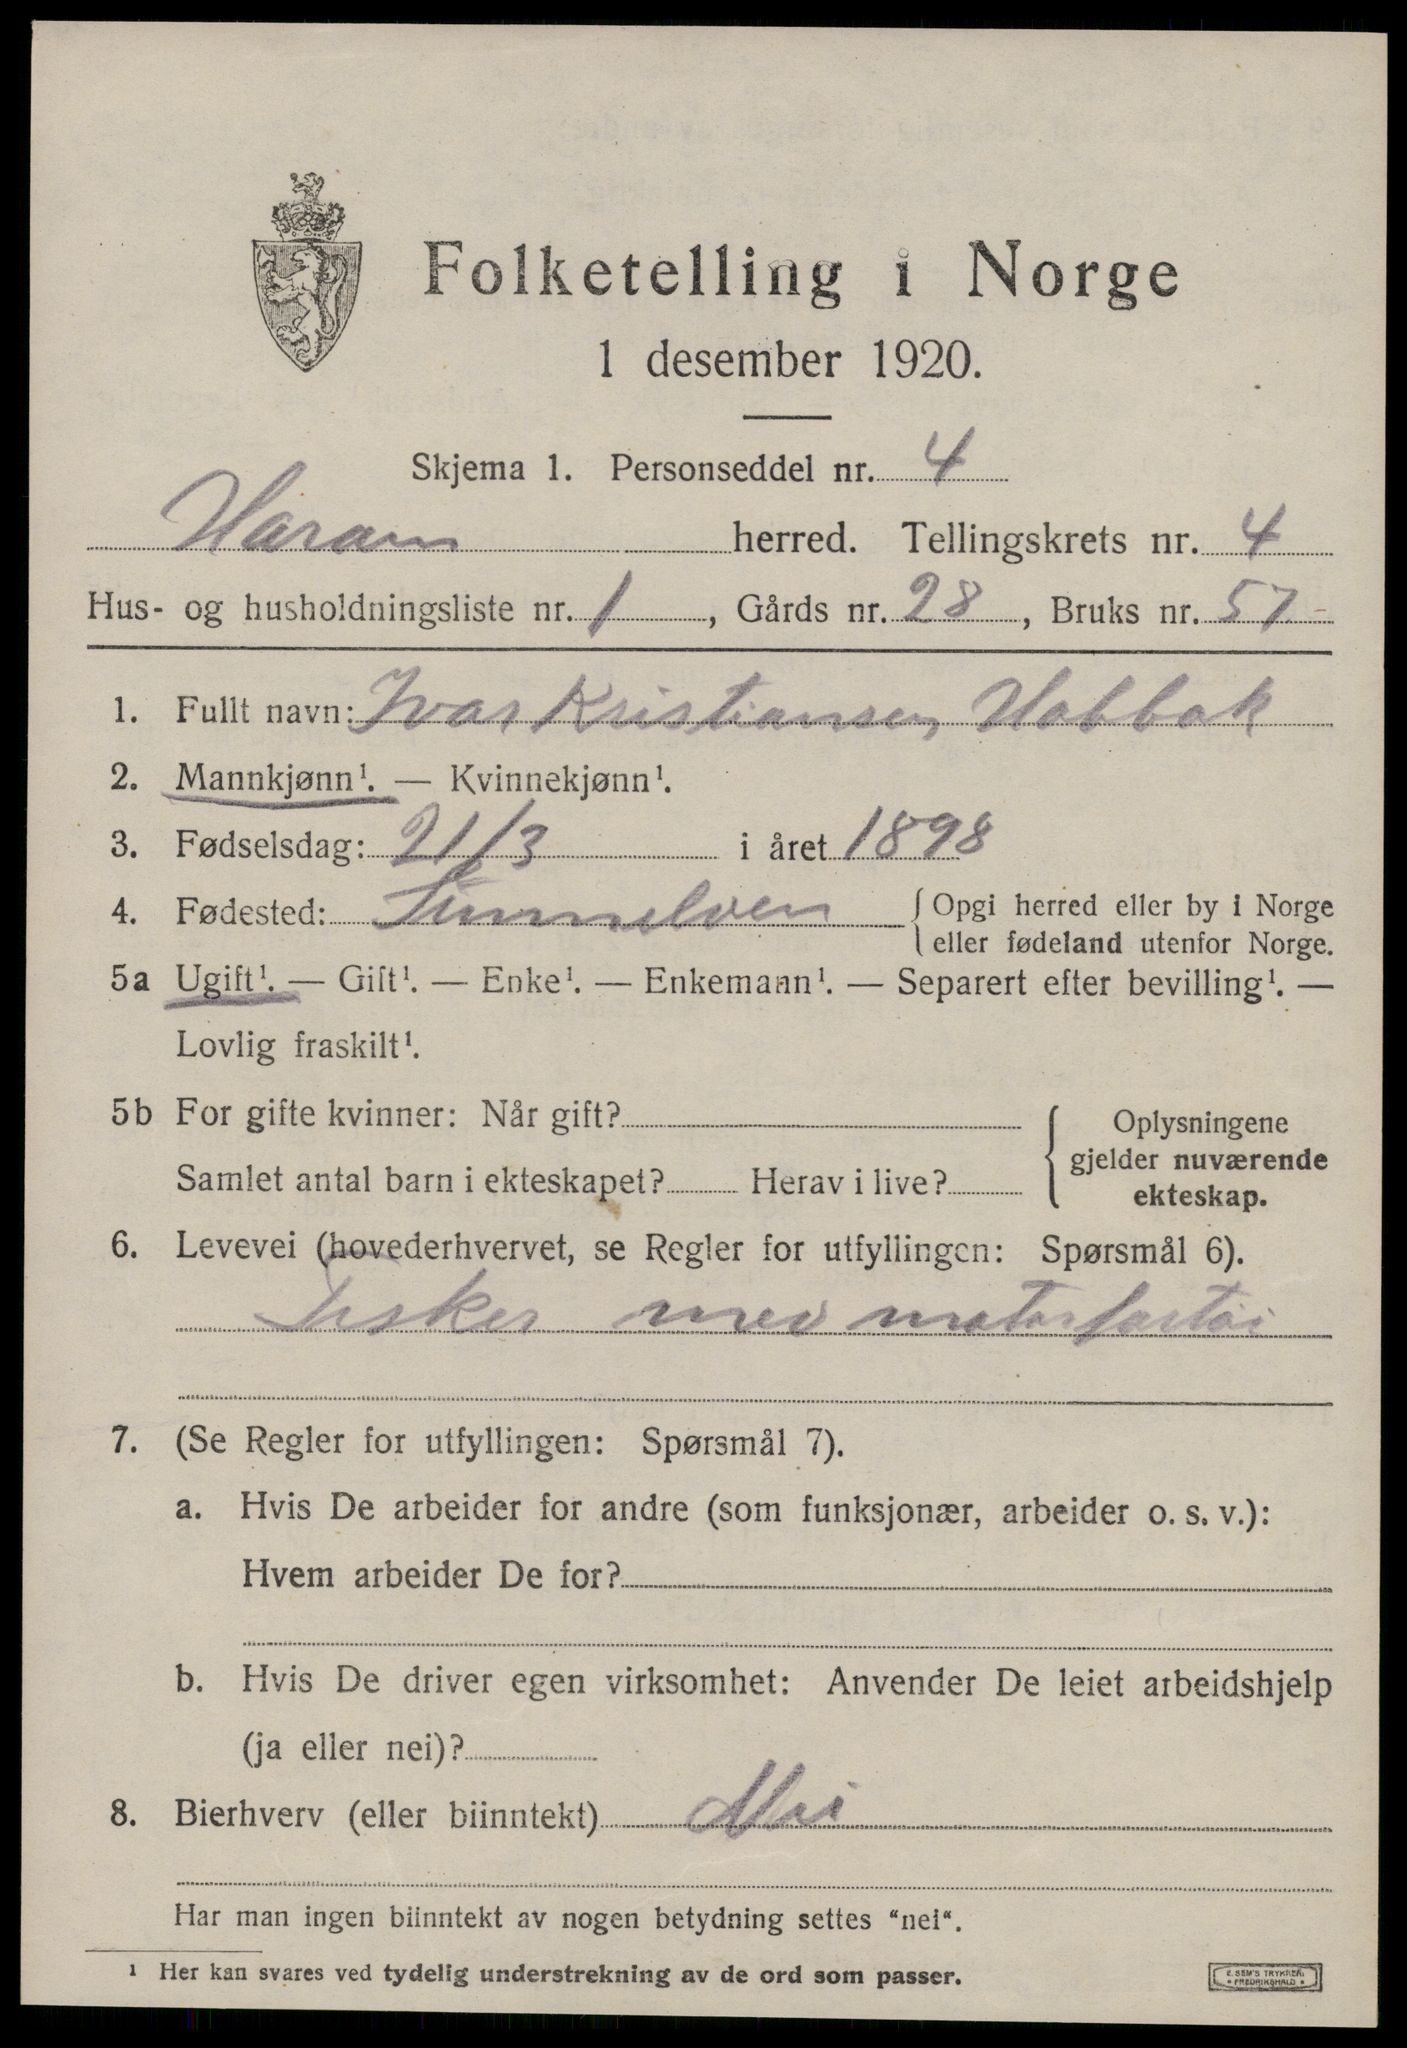 Folketelling i Norge
1 desember 1920.
Skjema 1. Personseddel nr. 4
Haram herred. Tellingskrets nr. 4
Hus- og husholdningsliste nr. 1, Gårds nr. 28, Bruks nr. 57
1. Fullt navn: Ivar Kristiansen Habbak
2. Mannkjønn¹. — Kvinnekjønn¹.
3. Fødselsdag: 21/3 i året 1898
4. Fødested: { Opgi herred eller by i Norge
eller fødeland utenfor Norge.
5a Ugift¹. — Gift¹. — Enke¹. — Enkemann¹. — Separert efter bevilling¹. —
Lovlig fraskilt¹.
5b For gifte kvinner: Når gift? { Oplysningene
gjelder nuværende
Samlet antal barn i ekteskapet? Herav i live? ekteskap.
6. Levevei (hovederhvervet, se Regler for utfyllingen: Spørsmål 6).
Fisker med motorfartøi
7. (Se Regler for utfyllingen: Spørsmål 7).
a. Hvis De arbeider for andre (som funksjonær, arbeider o. s. v.):
Hvem arbeider De for?
b. Hvis De driver egen virksomhet: Anvender De leiet arbeidshjelp
(ja eller nei)?
8. Bierhverv (eller biinntekt) Nei
Har man ingen biinntekt av nogen betydning settes "nei".
¹ Her kan svares ved tydelig understrekning av de ord som passer.
E. SEM'S TRYKKERI
FREDRIKSHALD